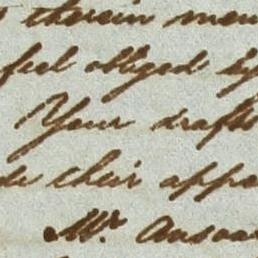 therein men
feel obliged by
Your drafts
de their appe
Mr. Ansoa